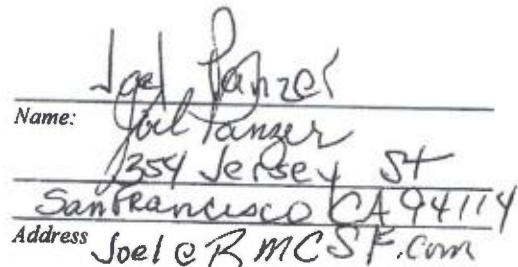 Joel Panzer
Name:
Joel Panzer
354 Jersey St
San Francisco CA 94114
Address Joel@RMCSF.com